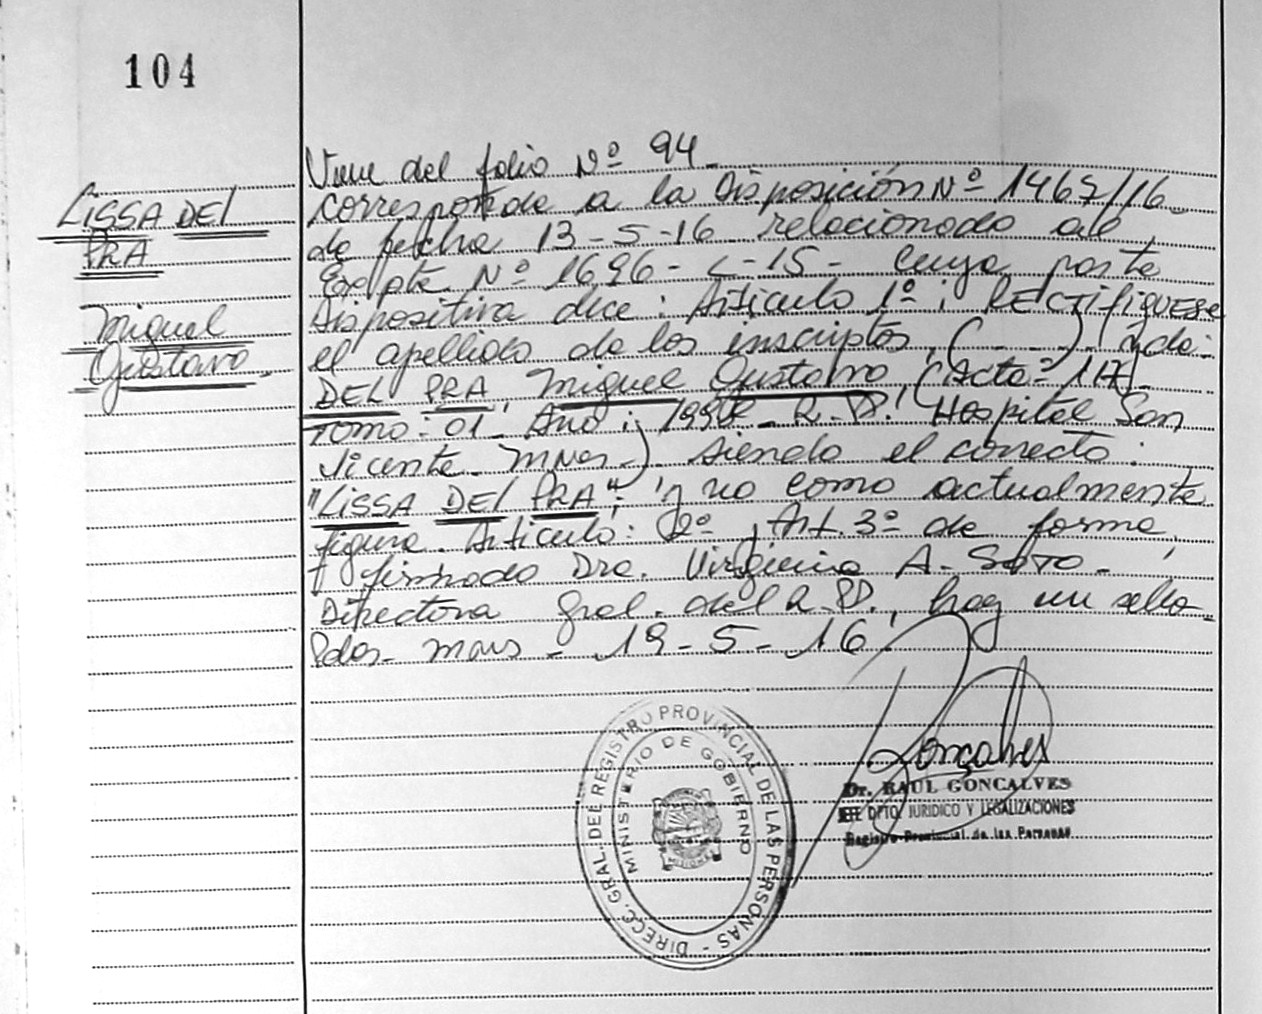 104
LISSA DEL
PRA
Miguel
Gustavo.
Viene del folio Nº 94_
corresponde a la Disposición Nº 1467/16_
de fecha 13-5-16 relacionado al
Expte Nº 1696-L-15- cuya parte
dispositiva dice: Artículo 1º: RECTIFIQUESE
el apellido de los inscriptos, (_____)
DEL PRA, Miguel Gustavo, (Acta: 17_
Tomo: 01_ Año: R.P. Hospital San
Vicente_ Mnes_) siendo el correcto:
"LISSA DEL PRA"; y no como actualmente
figura. Artículo: 2º, Art. 3º de forma,
firmado Dra. Virginia A. SOTO_
Directora Gral. del R.P., hay un sello
Pdas_ Mnes_ 19-5-16.
Goncalves
Dr. RAUL GONCALVES
JEFE DPTO. JURIDICO Y LEGALIZACIONES
Registro Provincial de las Personas
DIRECC. GRAL. DEL REGISTRO PROVINCIAL DE LAS PERSONAS -
MINISTERIO DE GOBIERNO
MISIONES